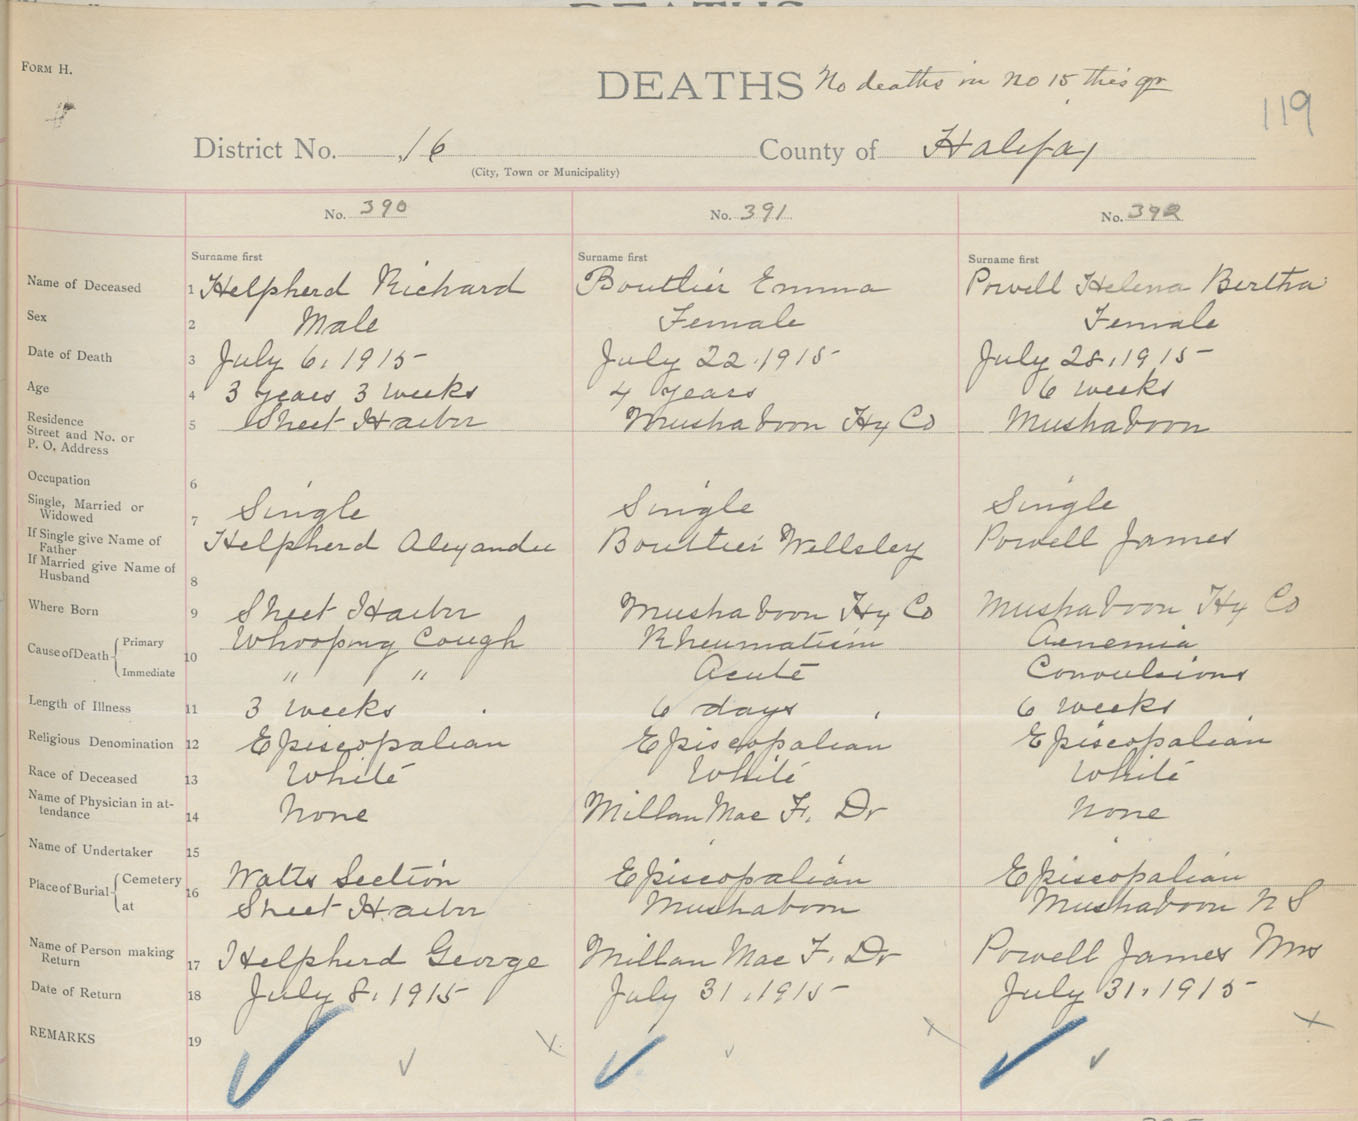 DEATHS
FORM H.
DEATHS No deaths in no 15 this qr
119
District No. 16 County of Halifax
(City, Town or Municipality)
No. 390 No. 391 No. 392
Surname first Surname first Surname first
Name of Deceased 1 Helpherd Richard Boutlier Emma Powell Helena Bertha
Sex 2 Male Female Female
Date of Death 3 July 6, 1915 July 22, 1915 July 28, 1915
Age 4 3 years 3 weeks 4 years 6 weeks
Residence
Street and No. or
P. O. Address 5 Sheet Harbor Mushaboon Hx Co Mushaboon
Occupation 6
Single, Married or
Widowed 7 Single Single Single
If Single give Name of
Father
If Married give Name of
Husband 8 Helpherd Alexander Boutlier Wellsley Powell James
Where Born 9 Sheet Harbor Mushaboon Hx Co Mushaboon Hx Co
Cause of Death Primary 10 Whooping Cough Rheumatism Aenemia
Immediate " " Acute Convulsions
Length of Illness 11 3 weeks 6 days 6 weeks
Religious Denomination 12 Episcopalian Episcopalian Episcopalian
Race of Deceased 13 White White White
Name of Physician in at-
tendance 14 None Millan Mac F. Dr None
Name of Undertaker 15
Place of Burial Cemetery 16 Watts Section Episcopalian Episcopalian
at Sheet Harbor Mushaboon Mushaboon N S
Name of Person making
Return 17 Helpherd George Millan Mac F. Dr Powell James Mrs
Date of Return 18 July 8, 1915 July 31, 1915 July 31, 1915
REMARKS 19